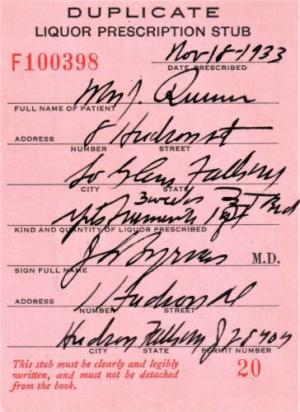 DUPLICATE
LIQUOR PRESCRIPTION STUB
F100398
Nov 18-1933
DATE PRESCRIBED
Quinn
FULL NAME OF PATIENT
ADDRESS 8 Hudson st
NUMBER STREET
So Glens Falls ny
CITY STATE
3 weeks
KIND AND QUANTITY OF LIQUOR PRESCRIBED
M.D.
SIGN FULL NAME
ADDRESS 1 Hudson
NUMBER STREET
Hudson Falls ny J28404
CITY STATE PERMIT NUMBER
This stub must be clearly and legibly
written, and must not be detached
from the book.
20